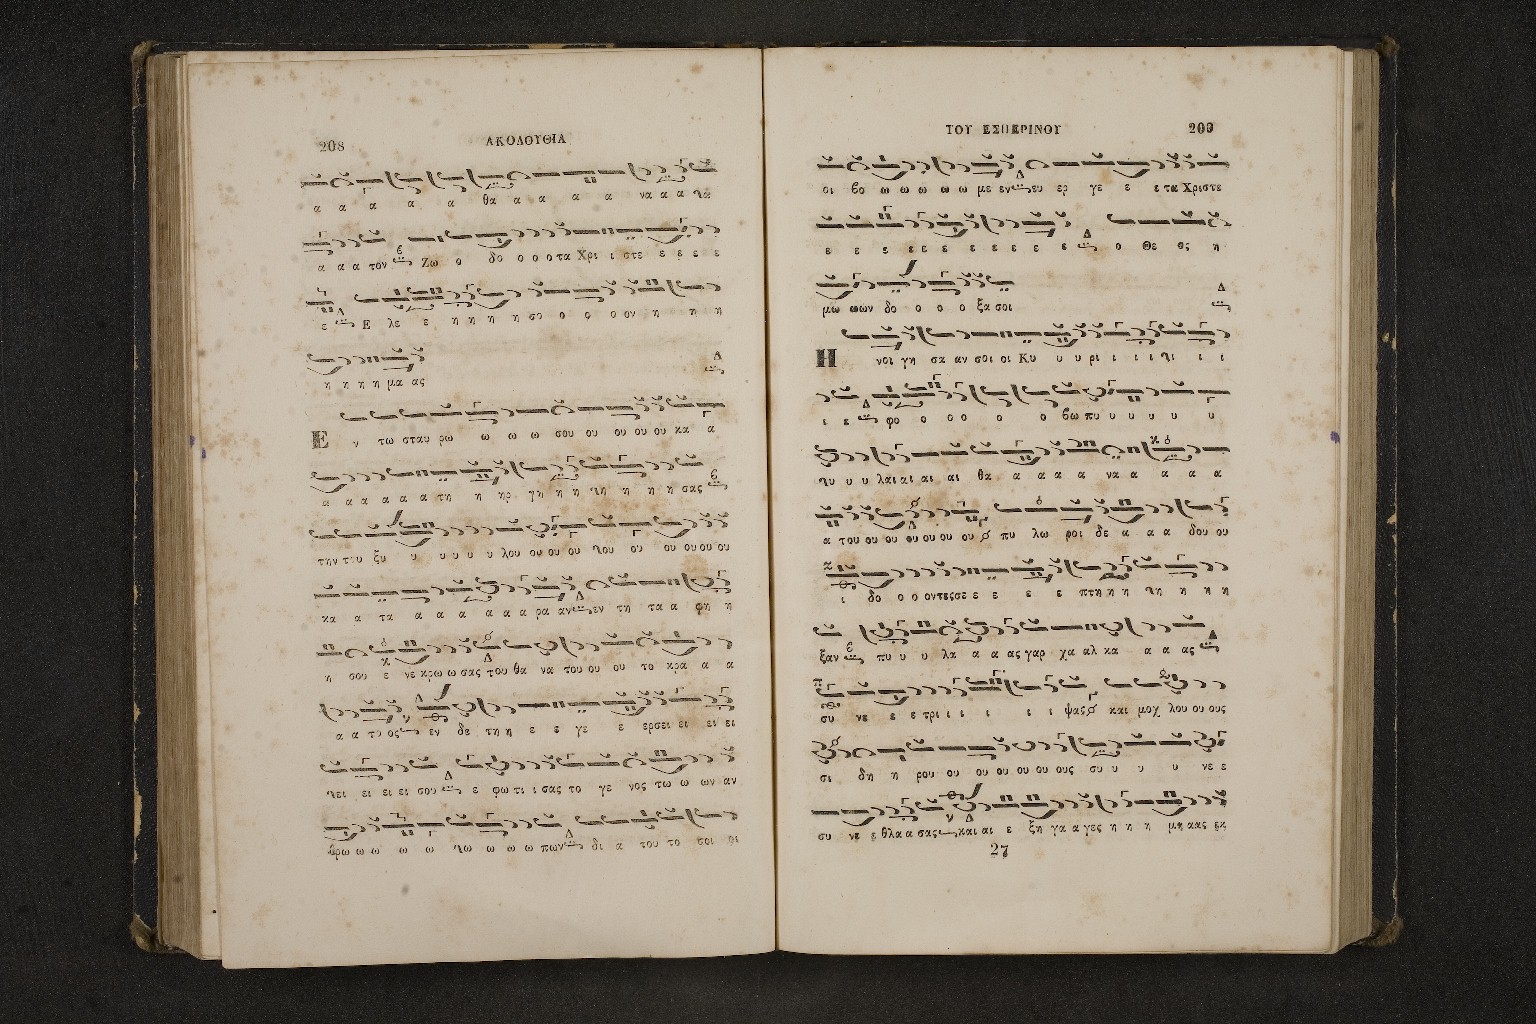 208
ΑΚΟΛΟΥΘΙΑ
α α α α α θα α α α α να α α τα
α α α τον Ζω ο δο ο ο ο τα Χρι ι στε ε ε ε ε
ε Ε λε ε η η η η σο ο ς ο ον η η η
η η η η μα ας
Ε ν τω σταυ ρω ω ω ω σου ου ου ου ου κα α
α α α α α α τη η ηρ γη η η η η η σας
την του ξυ υ υ υ υ υ λου ου ου ου ου ου ου ου ου
κα α τα α α α α α α ρα αν εν τη τα α φη η
η σου ε νε κρω ω σας του θα να του ου ου το κρα α α
α α το ος εν δε τη η ε ε γε ε ερσει ει ει ει
ει ει ει σου ε φω τι ι σας το γε νος τω ω ων αν
θρω ω ω ω ω ω ω ω πων δι α του το σοι οι
ΤΟΥ ΕΣΠΕΡΙΝΟΥ
209
οι βο ω ω ω ω ω με εν ευ ερ γε ε ε τα Χριστε
ε ε ε ε ε ε ε ε ε ε ο Θε ος η
μω ων δο ο ο ο ξα σοι
Η νοι γη σα αν σοι οι Κυ υ υ ρι ι ι ι ι ι
ι ε φο ο ο ο ο ο βω πυ υ υ υ υ υ
υ υ λαι αι αι αι θα α α α α να α α α α
α του ου ου ου ου ου ου πυ λω ροι δε α α α δου ου
ι δο ο ο οντες σε ε ε ε ε πτη η η η η η
ξαν πυ υ υ λα α α ας γαρ χα αλ κα α α ας
συ νε ε ε τρι ι ι ι ι ι ψας και μοχ λου ου ους
σι δη η ρου ου ου ου ου ου ους συ υ υ υ νε ε
συ νε ε θλα α σας και αι ε ξη γα α γες η η η μη αας εκ
27